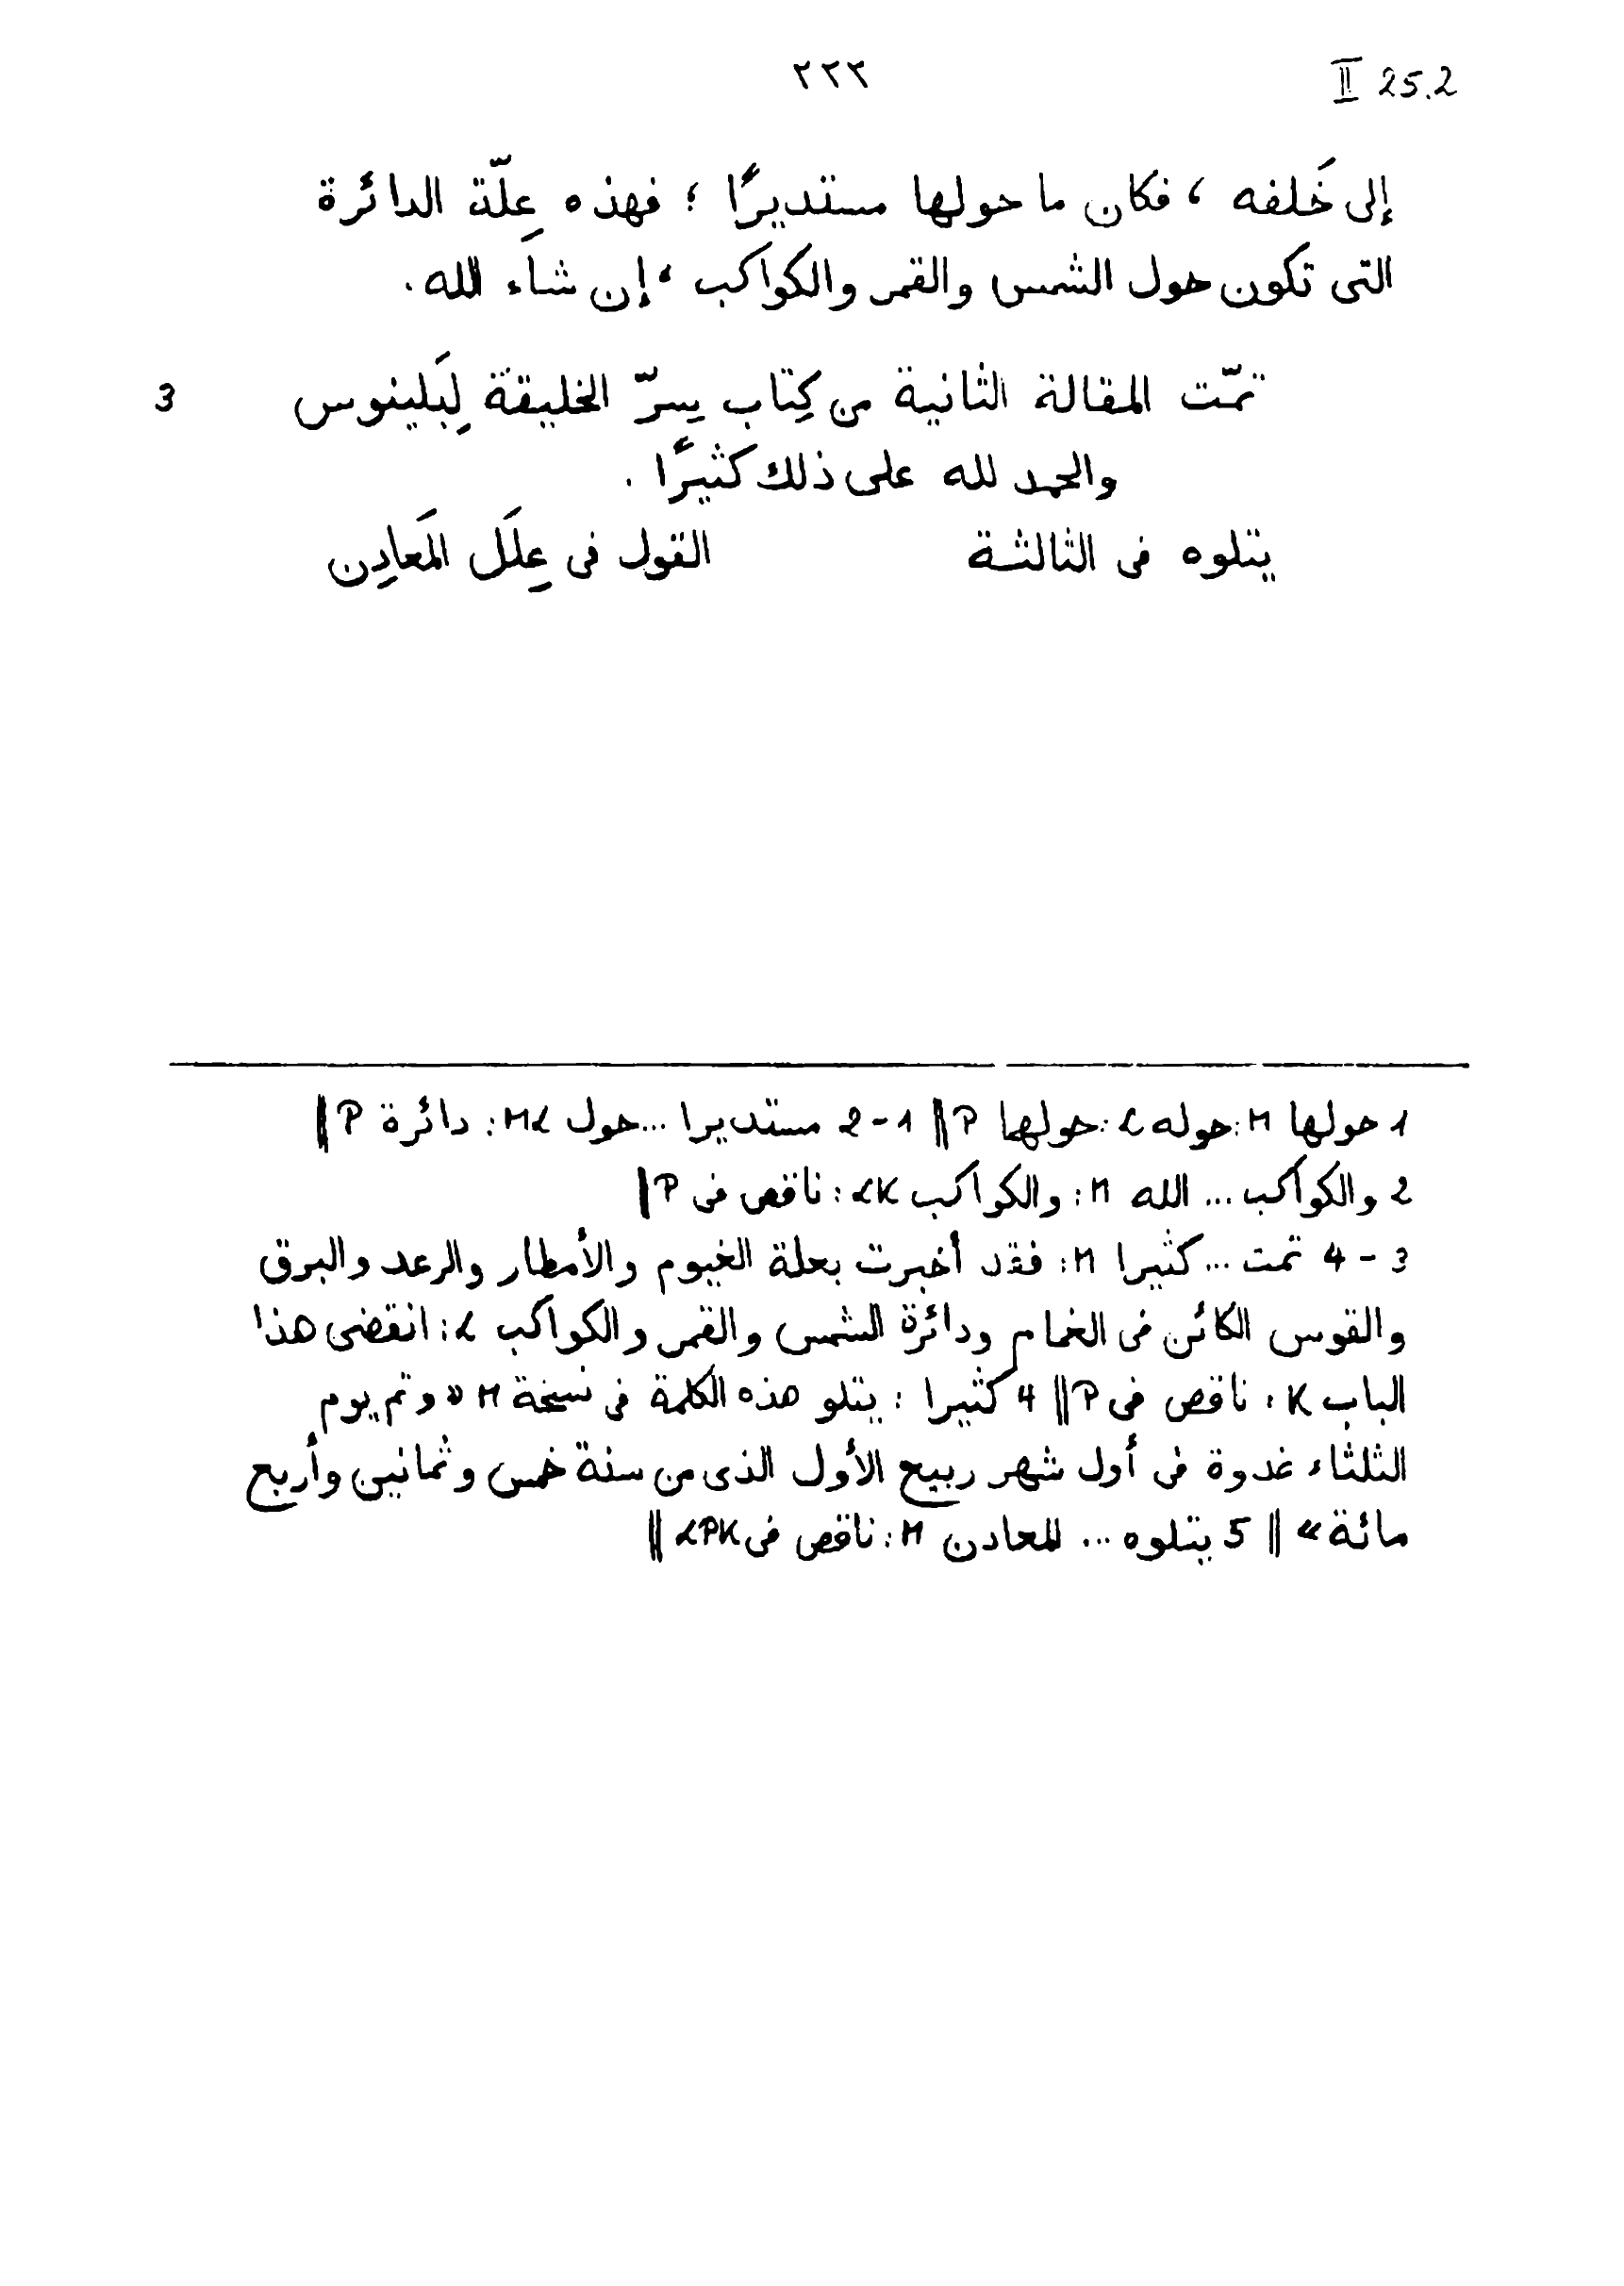 ٢٢٢
II 25.2
إلى خَلفه، فكان ما حولها مستديرًا؛ فهذه عِلّة الدائرة
التى تكون حول الشمس والقمر والكواكب، إن شاَء الله.
تمّت المقالة الثانية من كِتاب سِرّ الخليقة لِبَلينوس
3
والحمد لله على ذلك كثيرًا.
يتلوه فى الثالثة القول فى عِلَل المَعادِن
1 حولها M: حوله L: حولها P || 1-2 مستديرا...حول ML: دائرة P ||
2 والكواكب... الله M: والكواكب LK: ناقص فى P |
3-4 تمت... كثيرا M: فقد أخبرت بعلة الغيوم والأمطار والرعد والبرق
والقوس الكائن فى الغمام ودائرة الشمس والقمر والكواكب L: انقضى هذا
الباب K: ناقص فى P || 4 كثيرا: يتلو هذه الكلمة فى نسخة M «وتم يوم
الثلثاء غدوة فى أول شهر ربيع الأول الذى من سنة خمس وثمانين وأربع
مائة» || 5 يتلوه... المعادن M: ناقص فى LPK ||